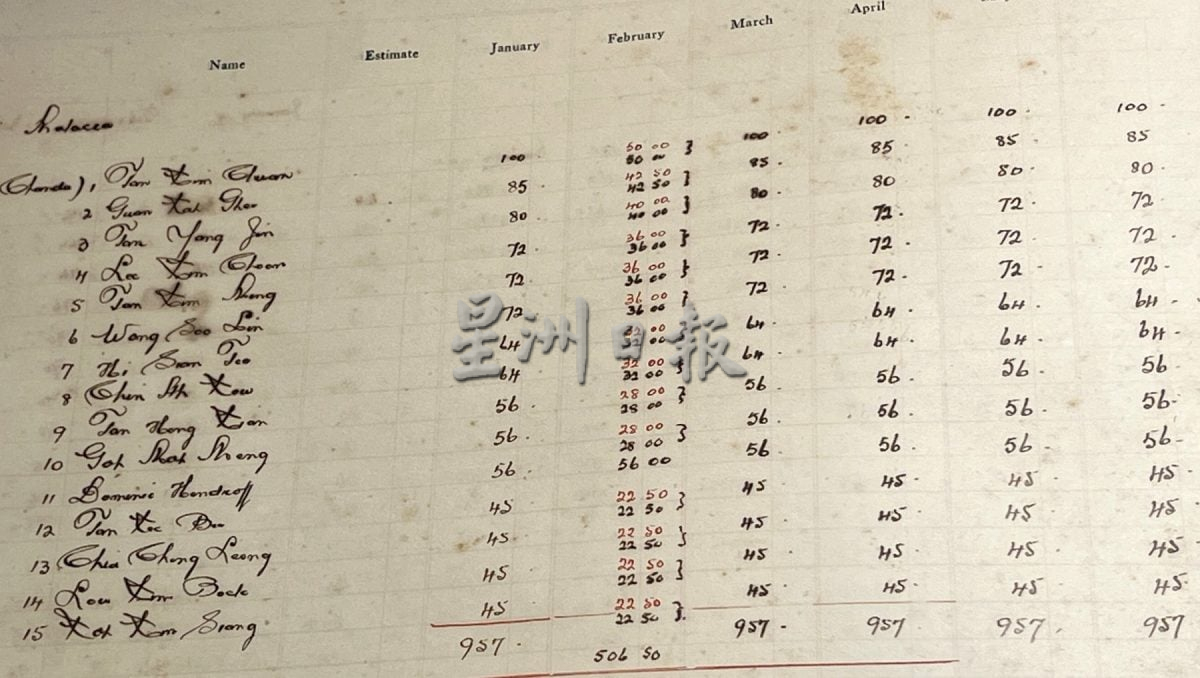 Name Estimate January February March April
Malacca
1 Tan Kim Chuan 100 50 00 50 00 } 100 100 100 100
2 Guan Kah 85 42 50 42 50 } 85 85 85 85
3 Tan Yang Jin 80 40 00 40 00 } 80 80 80 80
4 Lee Kim Choon 72 36 00 36 00 } 72 72 72 72
5 Tan Kim 72 36 00 36 00 } 72 72 72 72
6 Wong Soo Lin 72 36 00 36 00 } 72 72 72 72
7 Sian Teo 64 32 00 32 00 } 64 64 64 64
8 Chin 64 32 00 32 00 } 64 64 64 64
9 Tan Hong 56 28 00 28 00 } 56 56 56 56
10 Goh 56 28 00 28 00 } 56 56 56 56
11 Dominic 56 56 00 56 56 56 56
12 Tan 45 22 50 22 50 } 45 45 45 45
13 Chia Chong Leong 45 22 50 22 50 } 45 45 45 45
14 Low Kim Bock 45 22 50 22 50 } 45 45 45 45
15 Koh Kim Siang 45 22 50 22 50 } 45 45 45 45
957 506 50 957 957 957 957
星洲日報